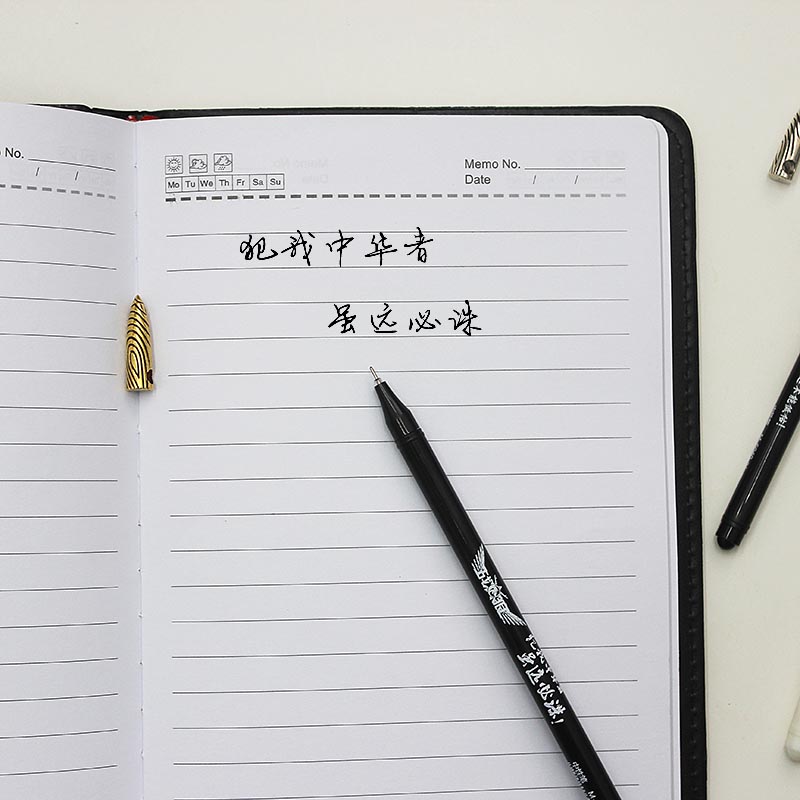 o No.
/ /
Mo Tu We Th Fr Sa Su
Memo No.
Date / /
犯我中华者
虽远必诛
战狼
犯我中华者
虽远必诛!